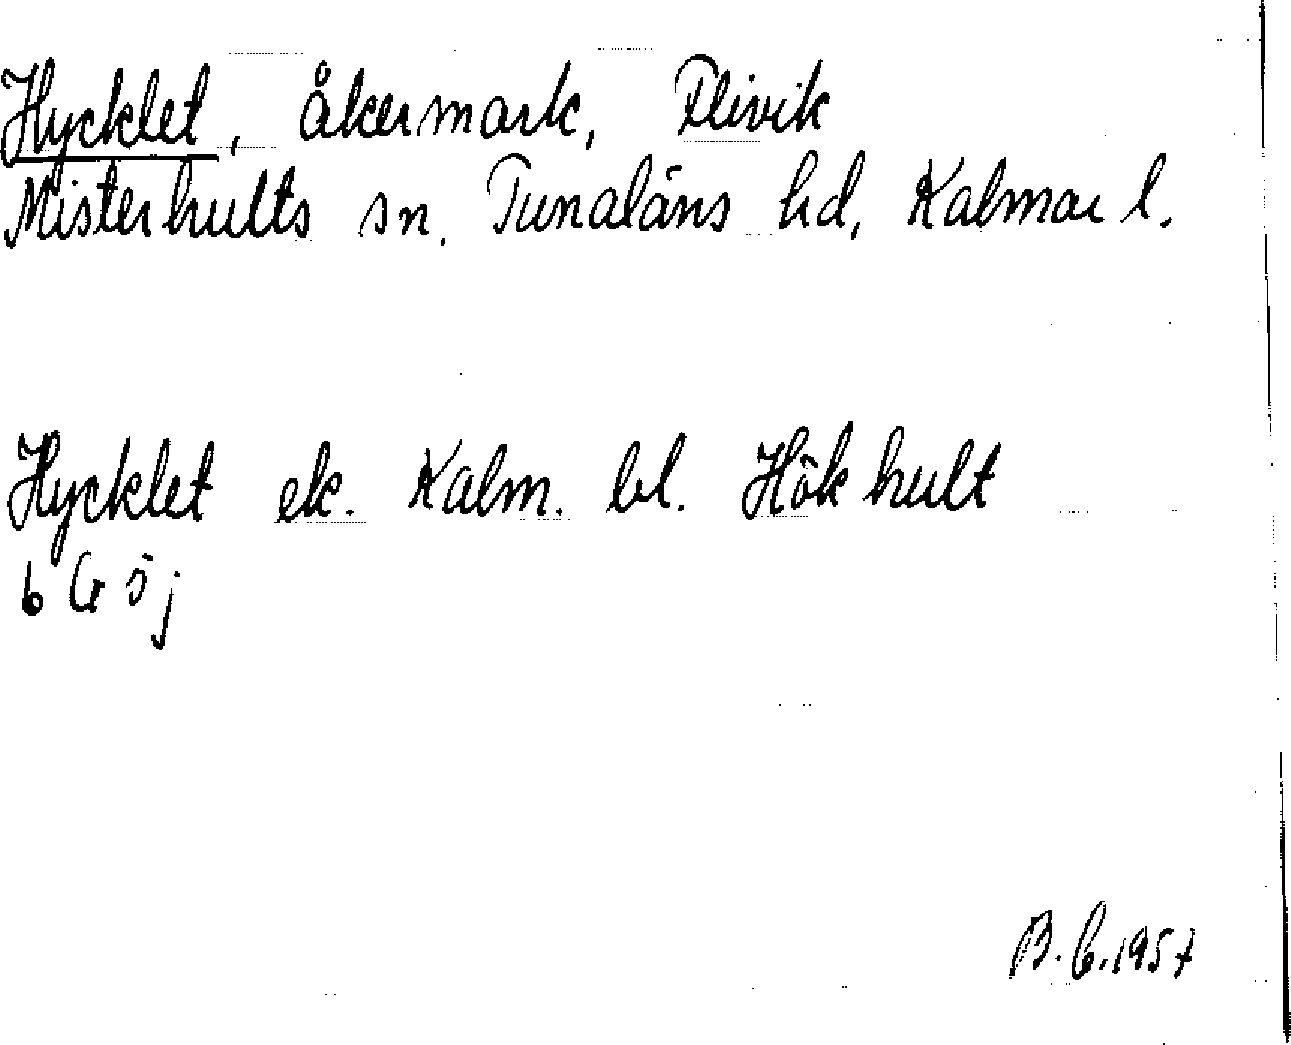 Hycklet, åkermark, Flivik
Misterhults sn. Tunaläns hd, Kalmar l.
Hycklet ek. Kalm. bl. Hökhult
6 G ö j
B. C. 1957